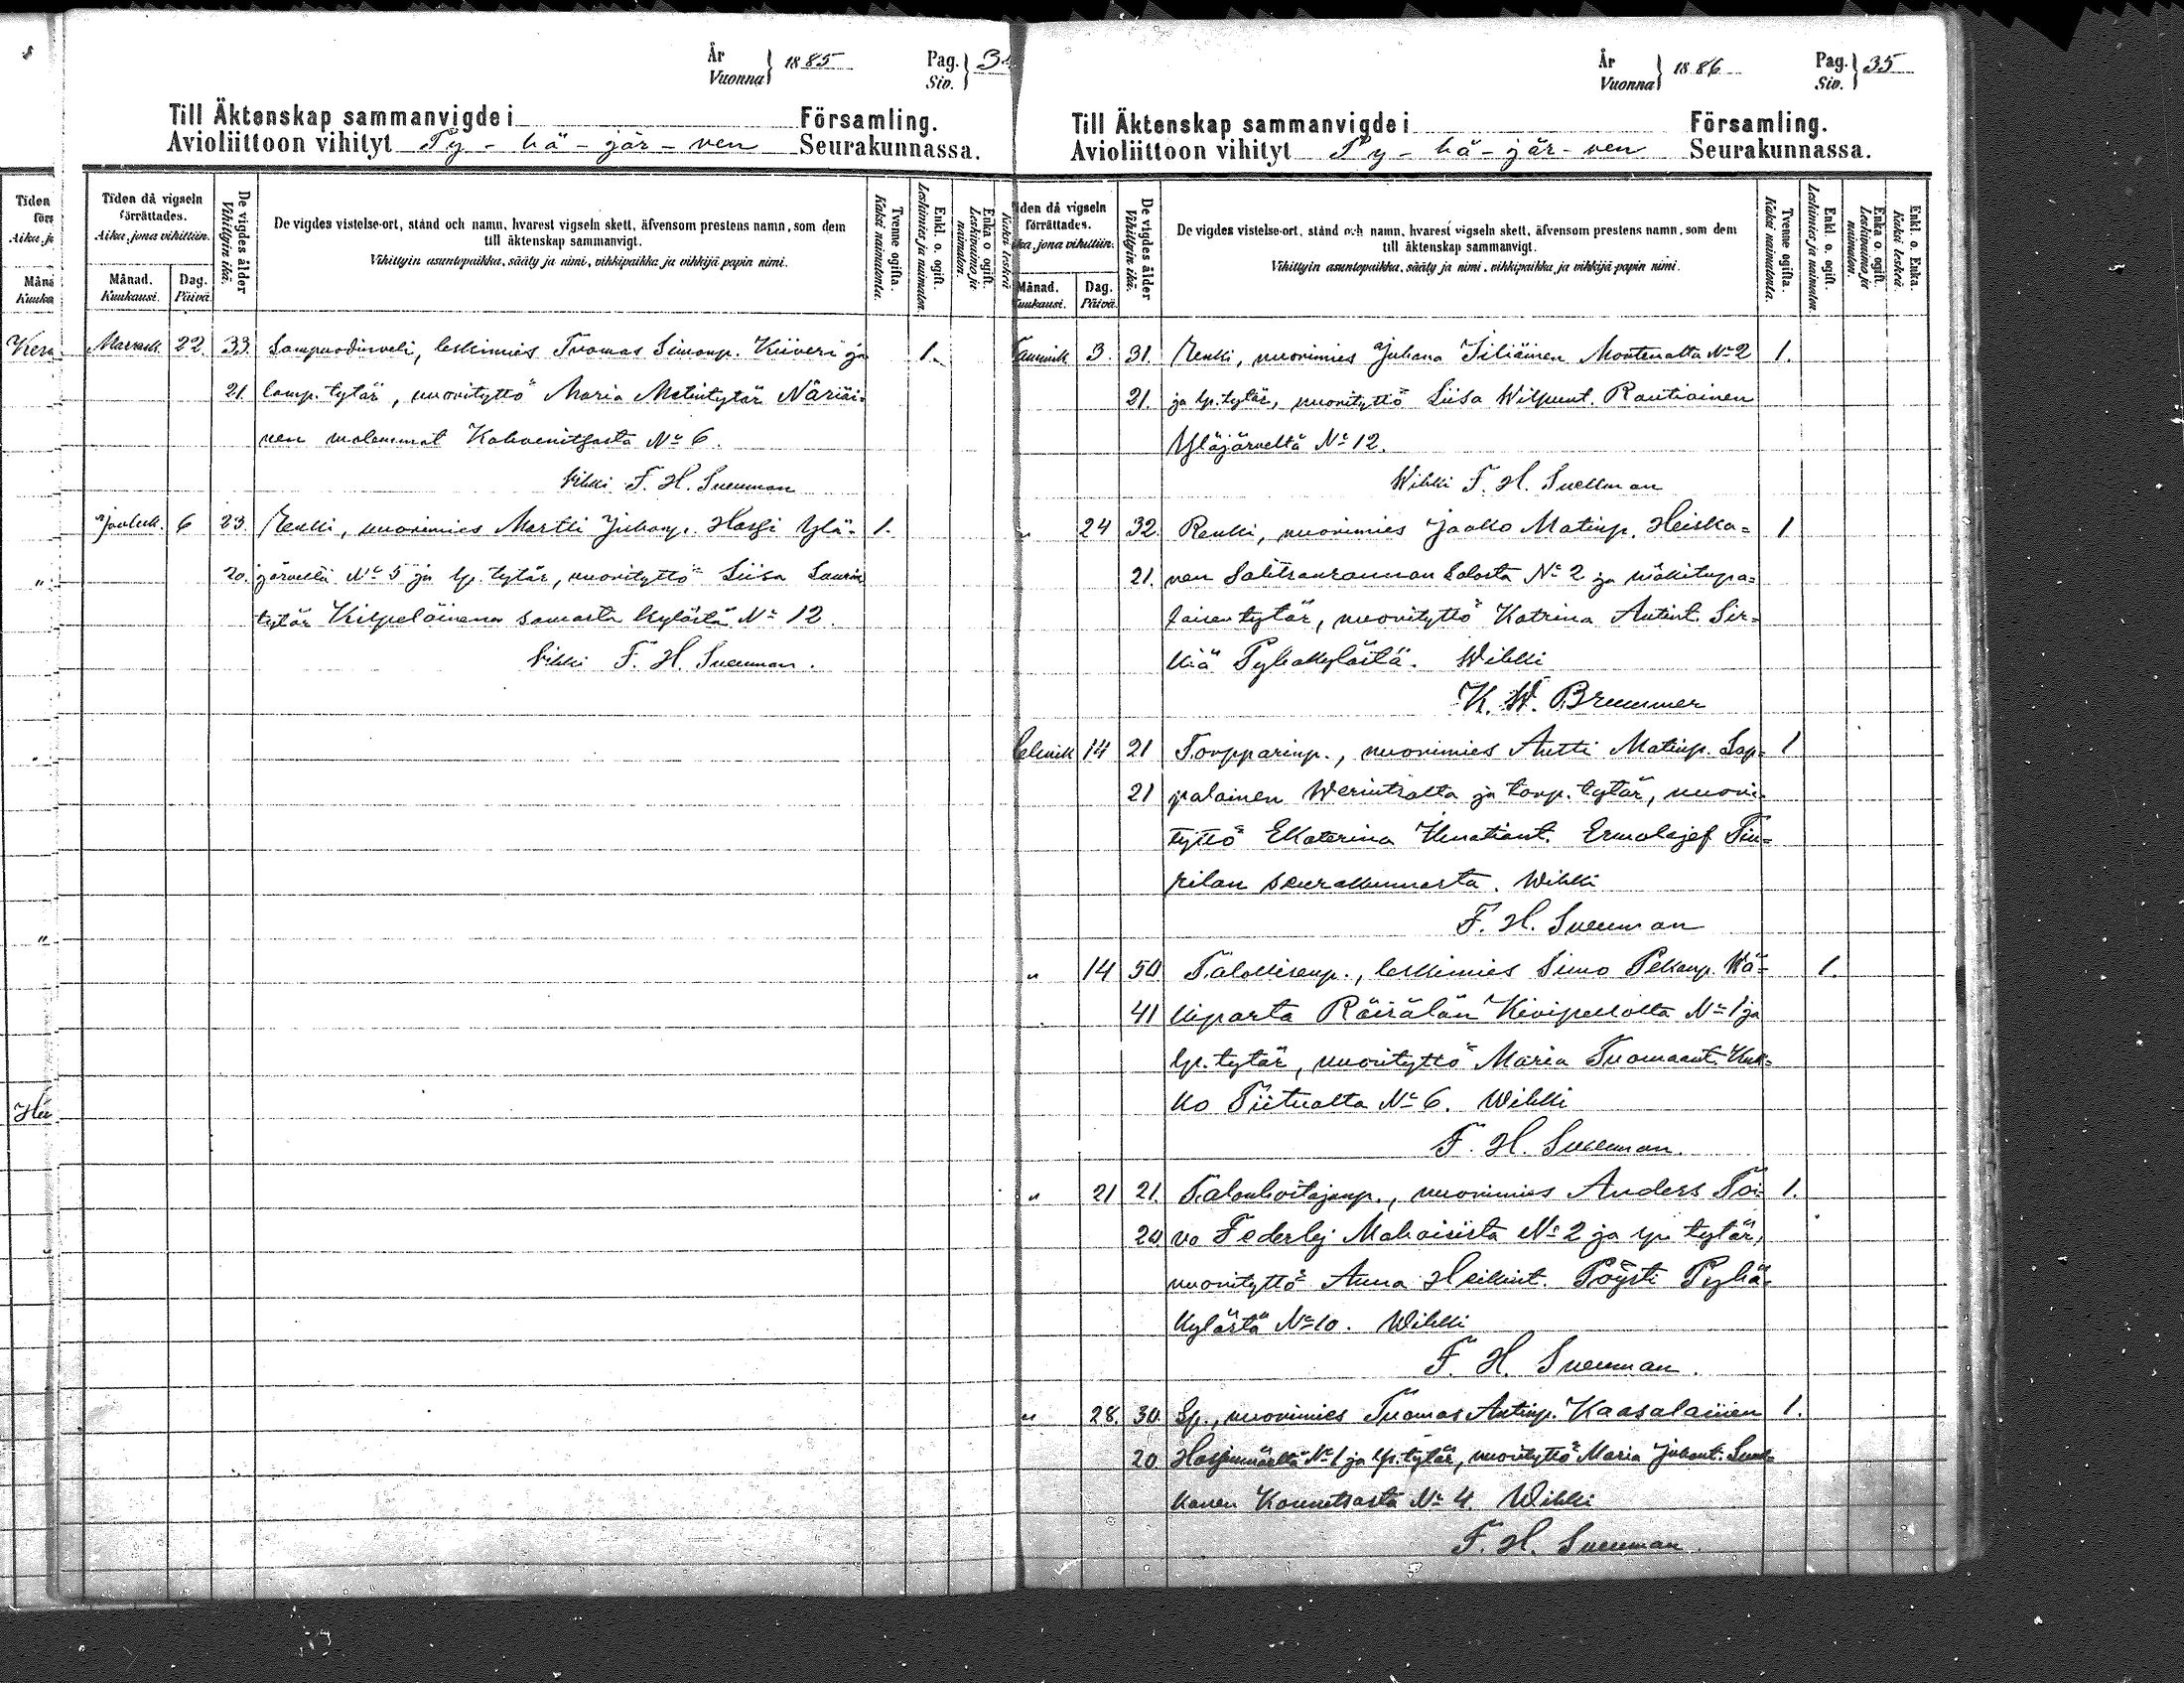 År
Vuonna } 1885
Pag.
Siv. } 34
Till Äktenskap sammanvigde i Församling.
Avioliittoon vihityt Py - hä - jär - ven Seurakunnassa.
Tiden då vigseln förrättades.
Aika, jona vihittiin.
Månad.
Kuukausi.
Dag.
Päivä.
De vigdes ålder
Vihittyin ikä.
De vigdes vistelse-ort, stånd och namn, hvarest vigseln skett, äfvensom prestens namn, som dem
till äktenskap sammanvigt.
Vihittyin asuntopaikka, sääty ja nimi, vihkipaikka ja vihkijä papin nimi.
Tvenne ogifta.
Kaksi naimatonta.
Enkl. o. ogift.
Leskimies ja naimaton.
Enka o ogift.
Leskivaimo ja naimaton.
Kaksi leskeä
Marrask. 22. 33. Lampuodinveli, leskimies Tuomas Simonp. Kiiveri ja 1.
21. lamp. tytär, nuorityttö Maria Matintytär Näriäi-
nen molemmat Kahvenitsasta No 6.
Vihki F. H. Snellman
Jouluk. 6 23. Renki, nuorimies Martti Juhanp. Hassi Ylä- 1.
20. järveltä No 5 ja lp. tytär, nuorityttö Liisa Laurin
tytär Kilpeläinen samasta kylästä No 12.
Vihki F. H. Snellman.
År
Vuonna } 1886
Pag.
Siv. } 35
Till Äktenskap sammanvigde i Församling.
Avioliittoon vihityt Py - hä - jär - ven Seurakunnassa.
iden då vigseln förrättades.
ika, jona vihittiin.
Månad.
Kuukausi.
Dag.
Päivä.
De vigdes ålder
Vihittyin ikä.
De vigdes vistelse-ort, stånd och namn, hvarest vigseln skett, äfvensom prestens namn, som dem
till äktenskap sammanvigt.
Vihittyin asuntopaikka, sääty ja nimi, vihkipaikka ja vihkijä papin nimi.
Tvenne ogifta.
Kaksi naimatonta.
Enkl. o. ogift.
Leskimies ja naimaton.
Enka o. ogift.
Leskivaimo ja naimaton.
Enkl. o. Enka.
Kaksi leskeä.
Tammik 3. 31. Renki, nuorimies Juhana Iiliäinen Montrualta No 2 1.
21. ja lp. tytär, nuorityttö Liisa Wilpunt. Rautiainen
Yläjärveltä No 12.
Wihki F. H. Snellman
" 24 32. Renki, nuorimies Jaakko Matinp. Heiska= 1
21. nen Salitsanrannan Salosta No 2 ja mäkitupa=
laisen tytär, nuorityttö Katrina Antint. Sir=
kiä Pyhäkylästä. Wihki
K. W. Brummer
helmik 14 21 Torpparinp., nuorimies Antti Matinp. Lap= 1
21 palainen Wernitsalta ja torp. tytär, nuori-
tyttö Ekaterina Ignatiant. Ermolajef Tiu=
rilan seurakunnasta. Wihki
F. H. Snellman
" 14 50. Talollisenp., leskimies Simo Pekanp. Wä= 1.
41 kiparta Räisälän Kivipellolta No 1 ja
lp. tytär, nuorityttö Maria Tuomaant. Kuk=
ko Tiitualta No 6. Wihki
F. H. Snellman.
" 21 21. Talonhoitajanp., nuorimies Anders Toi= 1.
20 vo Federlej Mahoisista No 2 ja lp. tytär,
nuorityttö Anna Heikint. Pöysti Pyhä-
kylästä No 10. Wihki
F. H. Snellman.
" 28. 30. Lp., nuorimies Tuomas Antinp. Kaasalainen 1.
20 No 1 ja lp. tytär, nuorityttö Maria Juhant.
Konnitsasta No 4. Wihki
F. H. Snellman.